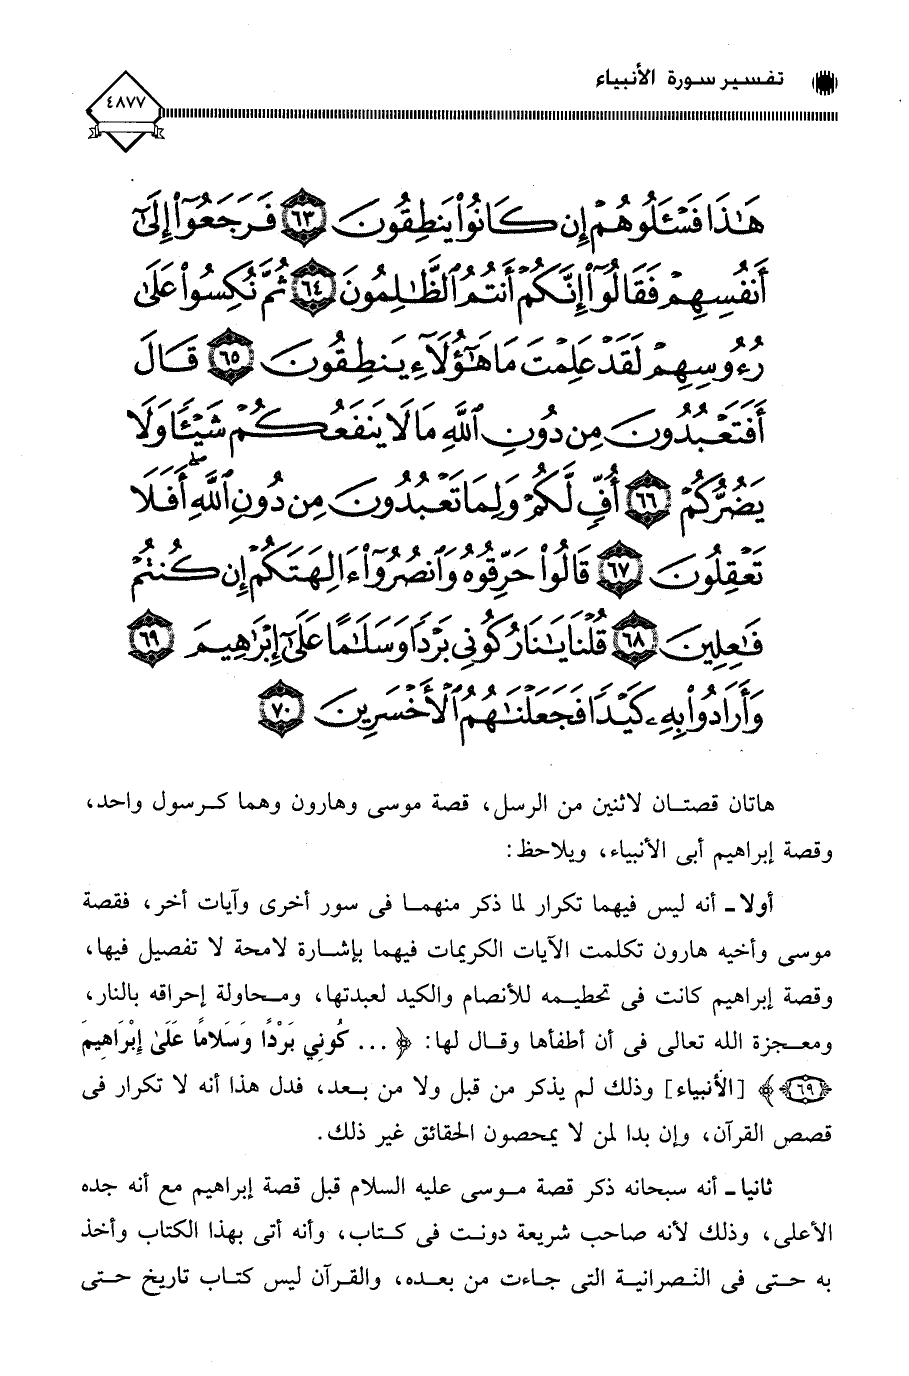 تفسير سورة الأنبياء
٤٨٧٧
هَٰذَا فَسْـَٔلُوهُمْ إِن كَانُوا۟ يَنطِقُونَ ٦٣ فَرَجَعُوٓا۟ إِلَىٰٓ
أَنفُسِهِمْ فَقَالُوٓا۟ إِنَّكُمْ أَنتُمُ ٱلظَّٰلِمُونَ ٦٤ ثُمَّ نُكِسُوا۟ عَلَىٰ
رُءُوسِهِمْ لَقَدْ عَلِمْتَ مَا هَٰٓؤُلَآءِ يَنطِقُونَ ٦٥ قَالَ
أَفَتَعْبُدُونَ مِن دُونِ ٱللَّهِ مَا لَا يَنفَعُكُمْ شَيْـًٔا وَلَا
يَضُرُّكُمْ ٦٦ أُفٍّ لَّكُمْ وَلِمَا تَعْبُدُونَ مِن دُونِ ٱللَّهِ ۖ أَفَلَا
تَعْقِلُونَ ٦٧ قَالُوا۟ حَرِّقُوهُ وَٱنصُرُوٓا۟ ءَالِهَتَكُمْ إِن كُنتُمْ
فَٰعِلِينَ ٦٨ قُلْنَا يَٰنَارُ كُونِى بَرْدًا وَسَلَٰمًا عَلَىٰٓ إِبْرَٰهِيمَ ٦٩
وَأَرَادُوا۟ بِهِۦ كَيْدًا فَجَعَلْنَٰهُمُ ٱلْأَخْسَرِينَ ٧٠
هاتان قصتان لاثنين من الرسل، قصة موسى وهارون وهما كرسول واحد،
وقصة إبراهيم أبى الأنبياء، ويلاحظ:
أولا- أنه ليس فيهما تكرار لما ذكر منهما فى سور أخرى وآيات أخر، فقصة
موسى وأخيه هارون تكلمت الآيات الكريمات فيهما بإشارة لامحة لا تفصيل فيها،
وقصة إبراهيم كانت فى تحطيمه للأنصام والكيد لعبدتها، ومحاولة إحراقه بالنار،
ومعجزة الله تعالى فى أن أطفأها وقال لها: ﴿... كُونِي بَرْدًا وَسَلَامًا عَلَىٰ إِبْرَاهِيمَ
٦٩﴾ [الأنبياء] وذلك لم يذكر من قبل ولا من بعد، فدل هذا أنه لا تكرار فى
قصص القرآن، وإن بدا لمن لا يمحصون الحقائق غير ذلك.
ثانيا- أنه سبحانه ذكر قصة موسى عليه السلام قبل قصة إبراهيم مع أنه جده
الأعلى، وذلك لأنه صاحب شريعة دونت فى كتاب، وأنه أتى بهذا الكتاب وأخذ
به حتى فى النصرانية التى جاءت من بعده، والقرآن ليس كتاب تاريخ حتى